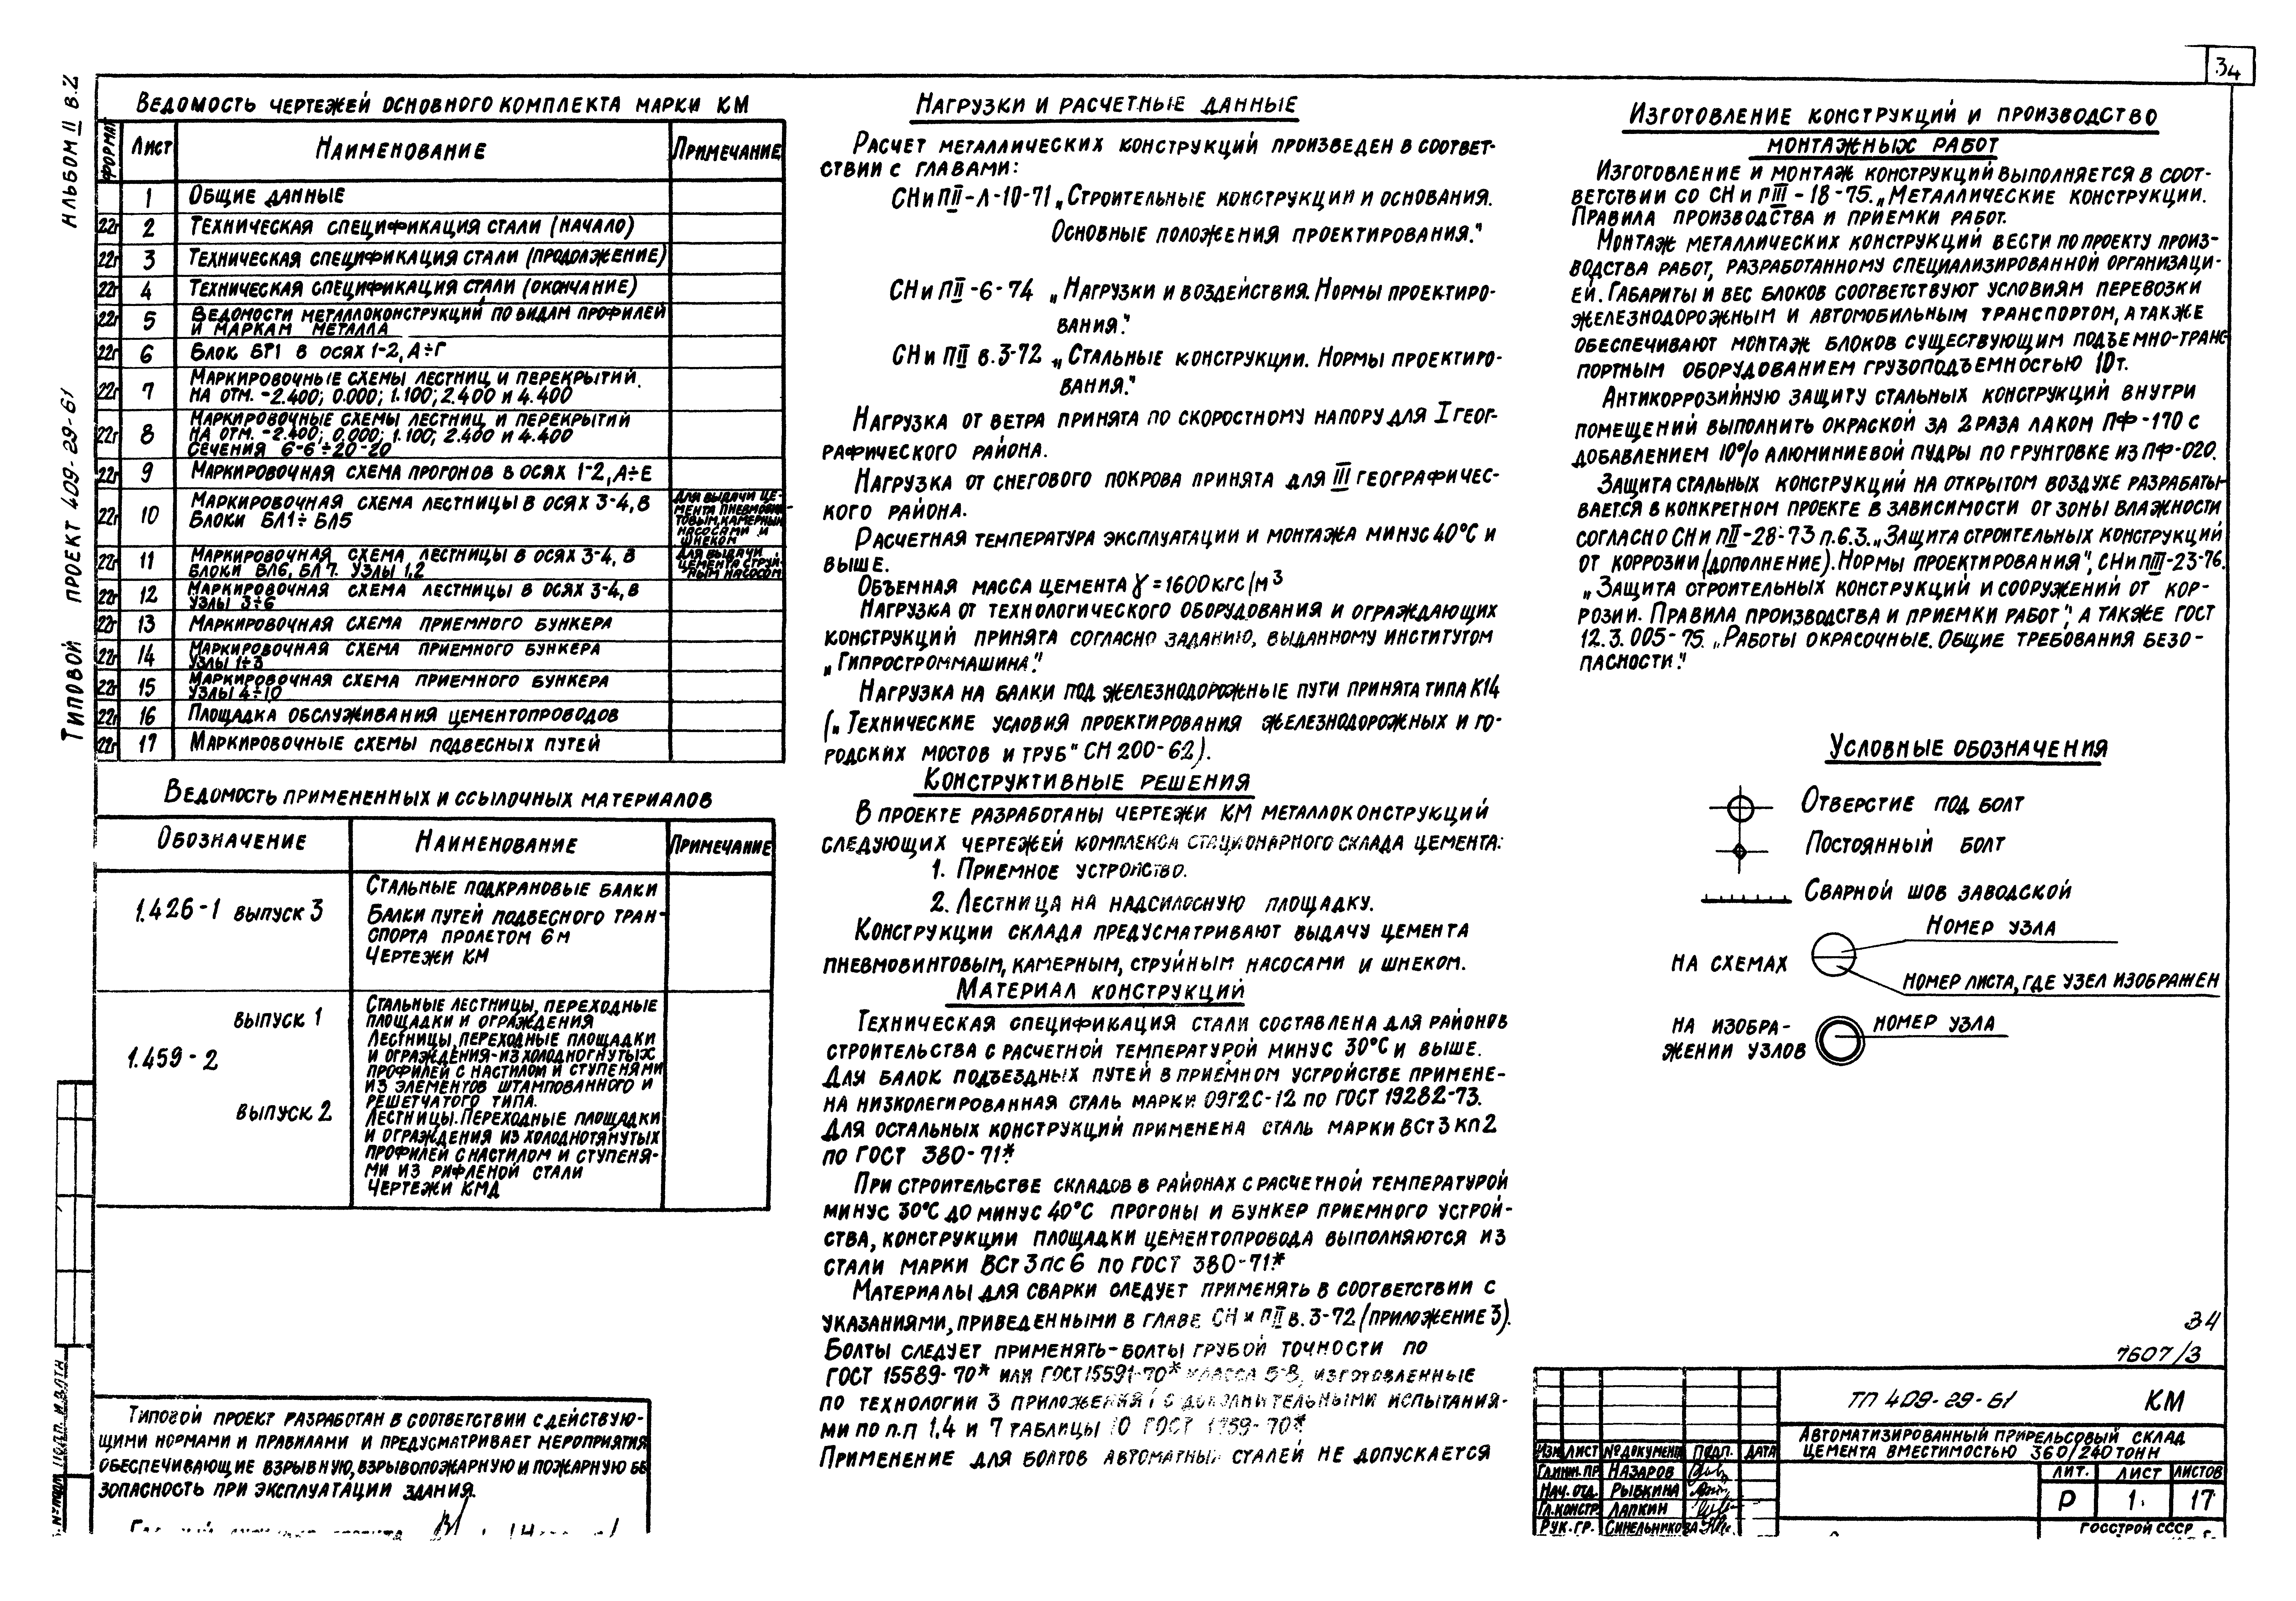 34
Альбом II в.2
Типовой проект 409-29-61
Ведомость чертежей основного комплекта марки КМ
Формат Лист Наименование Примечание
1 Общие данные
22г 2 Техническая спецификация стали (начало)
22г 3 Техническая спецификация стали (продолжение)
22г 4 Техническая спецификация стали (окончание)
22г 5 Ведомости металлоконструкций по видам профилей
и маркам металла
22г 6 Блок БТ1 в осях 1-2, А÷Г
22г 7 Маркировочные схемы лестниц и перекрытий
на отм. -2.400; 0.000; 1.100; 2.400 и 4.400
22г 8 Маркировочные схемы лестниц и перекрытий
на отм. -2.400; 0.000; 1.100; 2.400 и 4.400
Сечения 6-6÷20-20
22г 9 Маркировочная схема прогонов в осях 1-2, А÷Е
22г 10 Маркировочная схема лестницы в осях 3-4, В
Блоки БЛ1÷БЛ5
Для выдачи це-
мента пневмовин-
товым, камерным
насосами и
шнеком
22г 11 Маркировочная схема лестницы в осях 3-4, В
Блоки БЛ6, БЛ7. Узлы 1,2
Для выдачи
цемента струй-
ным насосом
22г 12 Маркировочная схема лестницы в осях 3-4, В
Узлы 3÷6
22г 13 Маркировочная схема приемного бункера
22г 14 Маркировочная схема приемного бункера
Узлы 1÷3
22г 15 Маркировочная схема приемного бункера
Узлы 4÷10
22г 16 Площадка обслуживания цементопроводов
22г 17 Маркировочные схемы подвесных путей
Ведомость примененных и ссылочных материалов
Обозначение Наименование Примечание
1.426-1 выпуск 3
Стальные подкрановые балки
Балки путей подвесного тран-
спорта пролетом 6м
Чертежи КМ
1.459-2
выпуск 1
Стальные лестницы, переходные
площадки и ограждения
Лестницы, переходные площадки
и ограждения-из холодногнутых
профилей с настилом и ступенями
из элементов штампованного и
решетчатого типа.
выпуск 2
Лестницы. Переходные площадки
и ограждения из холоднотянутых
профилей с настилом и ступеня-
ми из рифленой стали
Чертежи КМД
Типовой проект разработан в соответствии с действую-
щими нормами и правилами и предусматривает мероприятия
обеспечивающие взрывную, взрывопожарную и пожарную бе
зопасность при эксплуатации здания.
Нагрузки и расчетные данные
Расчет металлических конструкций произведен в соответ-
ствии с главами:
СНиПII-Л-10-71 „Строительные конструкции и основания.
Основные положения проектирования."
СНиПII-6-74 „Нагрузки и воздействия. Нормы проектиро-
вания."
СНиПII в.3-72 „Стальные конструкции. Нормы проектиро-
вания."
Нагрузка от ветра принята по скоростному напору для I геог-
рафического района.
Нагрузка от снегового покрова принята для III географичес-
кого района.
Расчетная температура эксплуатации и монтажа минус 40°С и
выше.
Объемная масса цемента γ=1600кгс/м³
Нагрузка от технологического оборудования и ограждающих
конструкций принята согласно заданию, выданному институтом
„Гипростроммашина."
Нагрузка на балки под железнодорожные пути принята типа К14
(„Технические условия проектирования железнодорожных и го-
родских мостов и труб" СН 200-62).
Конструктивные решения
В проекте разработаны чертежи КМ металлоконструкций
следующих чертежей комплекса стационарного склада цемента:
1. Приемное устройство.
2. Лестница на надсилосную площадку.
Конструкции склада предусматривают выдачу цемента
пневмовинтовым, камерным, струйным насосами и шнеком.
Материал конструкций
Техническая спецификация стали составлена для районов
строительства с расчетной температурой минус 30°С и выше.
Для балок подъездных путей в приемном устройстве примене-
на низколегированная сталь марки 09Г2С-12 по ГОСТ 19282-73.
Для остальных конструкций применена сталь марки ВСт3кп2
по ГОСТ 380-71*.
При строительстве складов в районах с расчетной температурой
минус 30°С до минус 40°С прогоны и бункер приемного устрой-
ства, конструкции площадки цементопровода выполняются из
стали марки ВСт3пс6 по ГОСТ 380-71*
Материалы для сварки следует применять в соответствии с
указаниями, приведенными в главе СНиПII в.3-72 (приложение 3).
Болты следует применять-болты грубой точности по
ГОСТ 15589-70* или ГОСТ 15591-70* класса 5-8, изготовленные
по технологии 3 приложения 1 с дополнительными испытания-
ми по п.п 1.4 и 7 таблицы 10 ГОСТ 1759-70*
Применение для болтов автоматных сталей не допускается
Изготовление конструкций и производство
монтажных работ
Изготовление и монтаж конструкций выполняется в соот-
ветствии со СНиПIII-18-75. „Металлические конструкции.
Правила производства и приемки работ.
Монтаж металлических конструкций вести по проекту произ-
водства работ, разработанному специализированной организаци-
ей. Габариты и вес блоков соответствуют условиям перевозки
железнодорожным и автомобильным транспортом, а также
обеспечивают монтаж блоков существующим подъемно-транс
портным оборудованием грузоподъемностью 10т.
Антикоррозийную защиту стальных конструкций внутри
помещений выполнить окраской за 2 раза лаком ПФ-170 с
добавлением 10% алюминиевой пудры по грунтовке из ПФ-020.
Защита стальных конструкций на открытом воздухе разрабаты-
вается в конкретном проекте в зависимости от зоны влажности
согласно СНиПII-28-73 п.6.3. „Защита строительных конструкций
от коррозии (дополнение). Нормы проектирования", СНиПIII-23-76.
„Защита строительных конструкций и сооружений от кор-
розии. Правила производства и приемки работ", а также ГОСТ
12.3.005-75. „Работы окрасочные. Общие требования безо-
пасности."
Условные обозначения
Отверстие под болт
Постоянный болт
Сварной шов заводской
на схемах
Номер узла
номер листа, где узел изображен
на изобра-
жении узлов
номер узла
34
7607/3
ТП 409-29-61 КМ
Автоматизированный прирельсовый склад
цемента вместимостью 360/240 тонн
Изм. Лист № документа Подп. Дата
Гл.инж.пр. Назаров
Нач. отд. Рывкина
Гл.констр. Лапкин
Рук.гр. Синельникова
Лит. Лист Листов
Р 1. 17
Госстрой СССР